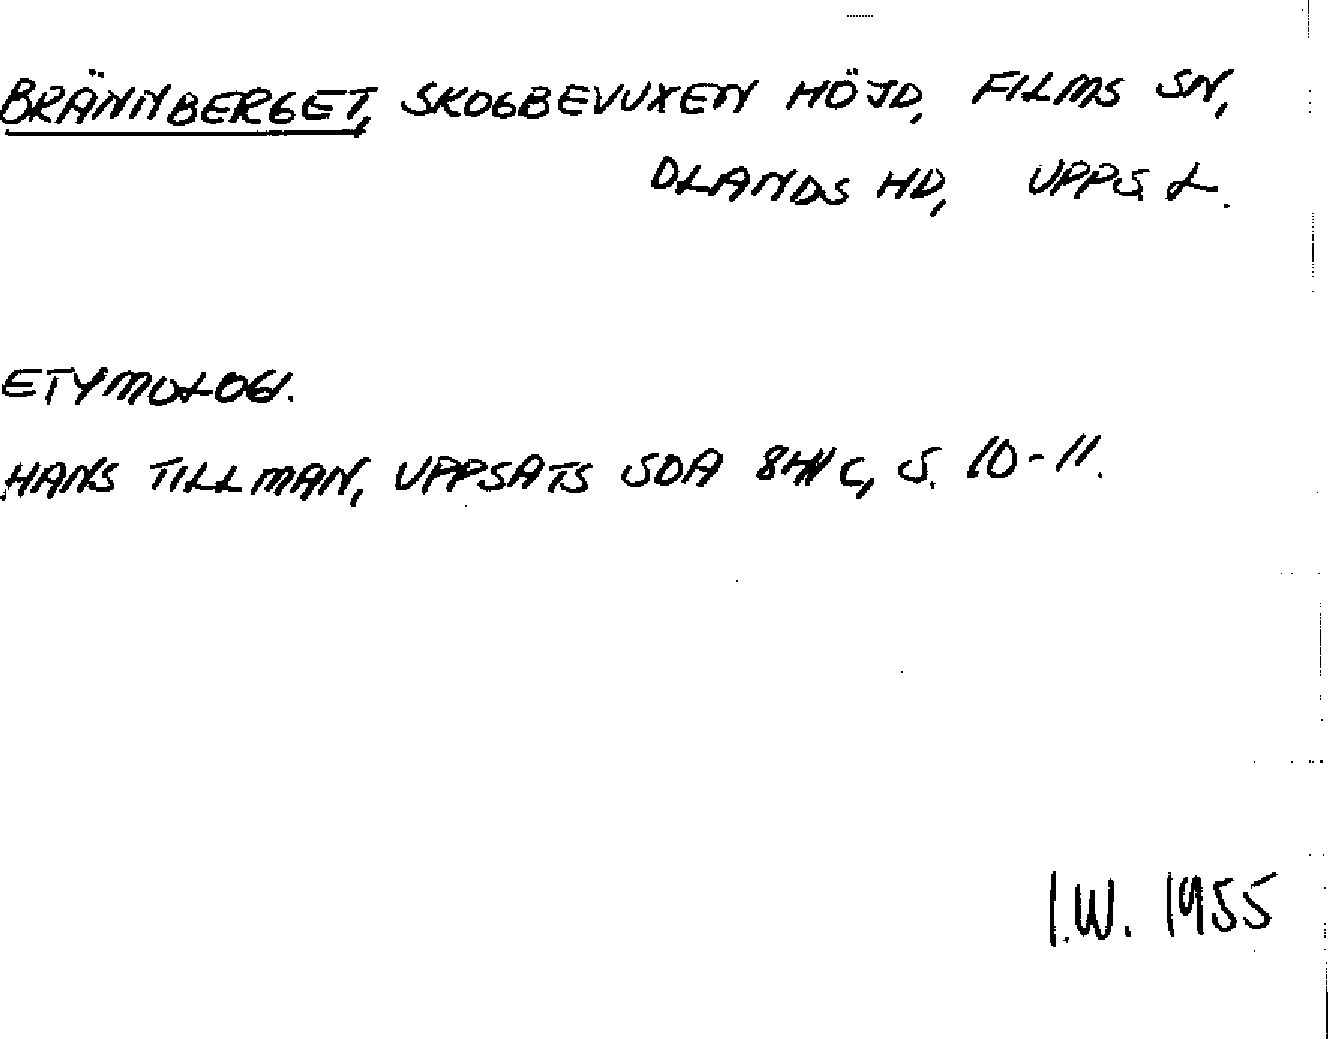 BRÄNNBERGET, SKOGBEVUXEN HÖJD, FILMS SN,
OLANDS HD, UPPS. L.
ETYMOLOGI.
HANS TILLMAN, UPPSATS SOA C, S. 10-11.
I.W. 1955